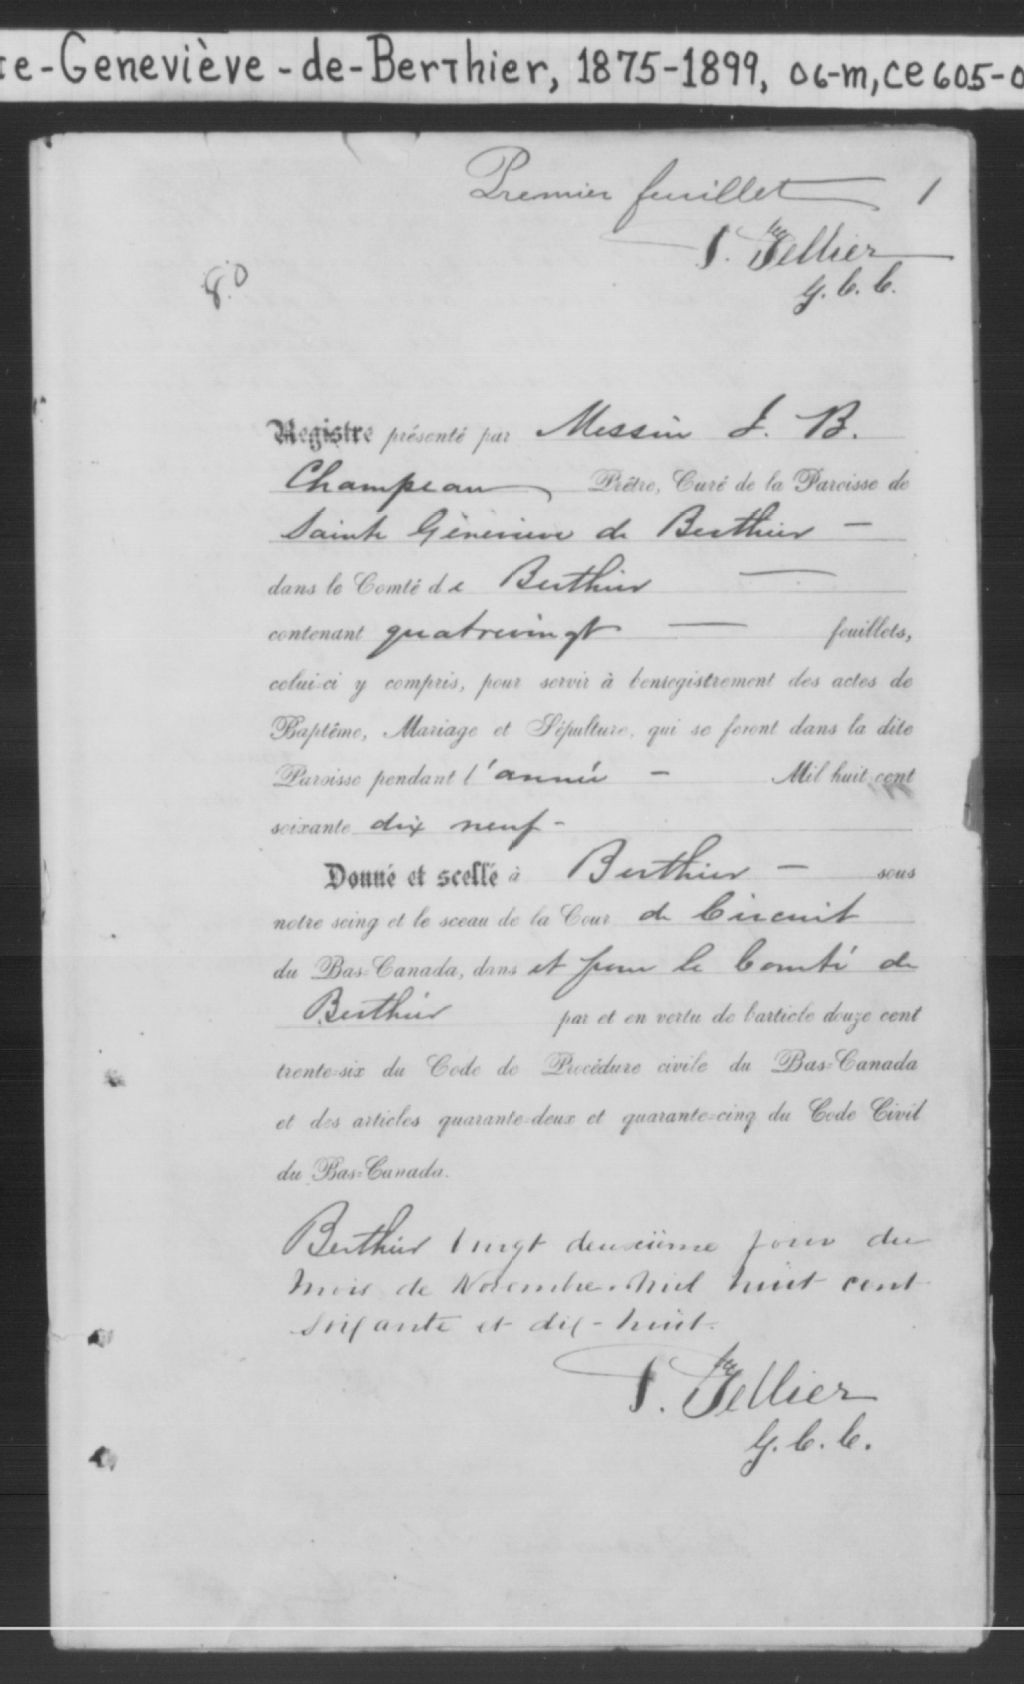 te-Geneviève-de-Berthier, 1875-1899, 06-m, ce605-0
Premier feuillet 1
Tellier
G. C. C.
80
Registre présenté par Messire J. B.
Champeau Prêtre, Curé de la Paroisse de
Sainte Génevieve de Berthier —
dans le Comté de Berthier —
contenant quatrevingt — feuillets,
celui-ci y compris, pour servir à l'enregistrement des actes de
Baptême, Mariage et Sépulture, qui se feront dans la dite
Paroisse pendant l'année — Mil huit cent
soixante dix neuf -
Donné et scellé à Berthier — sous
notre seing et le sceau de la Cour de Circuit
du Bas-Canada, dans et pour le Comté de
Berthier par et en vertu de l'article douze cent
trente-six du Code de Procédure civile du Bas-Canada
et des articles quarante-deux et quarante-cinq du Code Civil
du Bas-Canada.
Berthier vingt deuxième jour du
mois de Novembre mil huit cent
soixante et dix-huit.
Tellier
G. C. C.